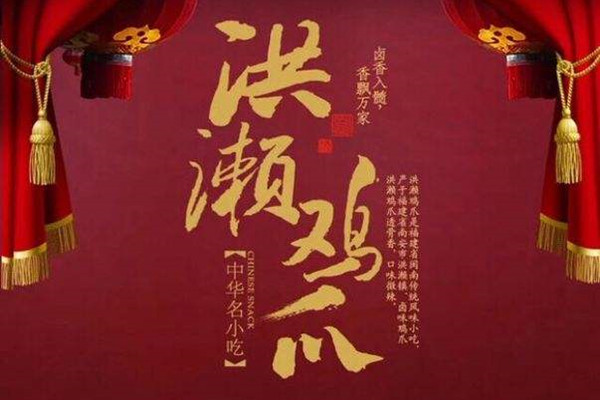 洪瀬鸡爪
卤香入髓，
香飘万家
洪瀬鸡爪是福建省闽南传统风味小吃，
产于福建省南安市洪瀬镇、卤味鸡爪
洪瀬鸡爪透骨香，口味微辣，
CHINESE SNACK
【中华名小吃】